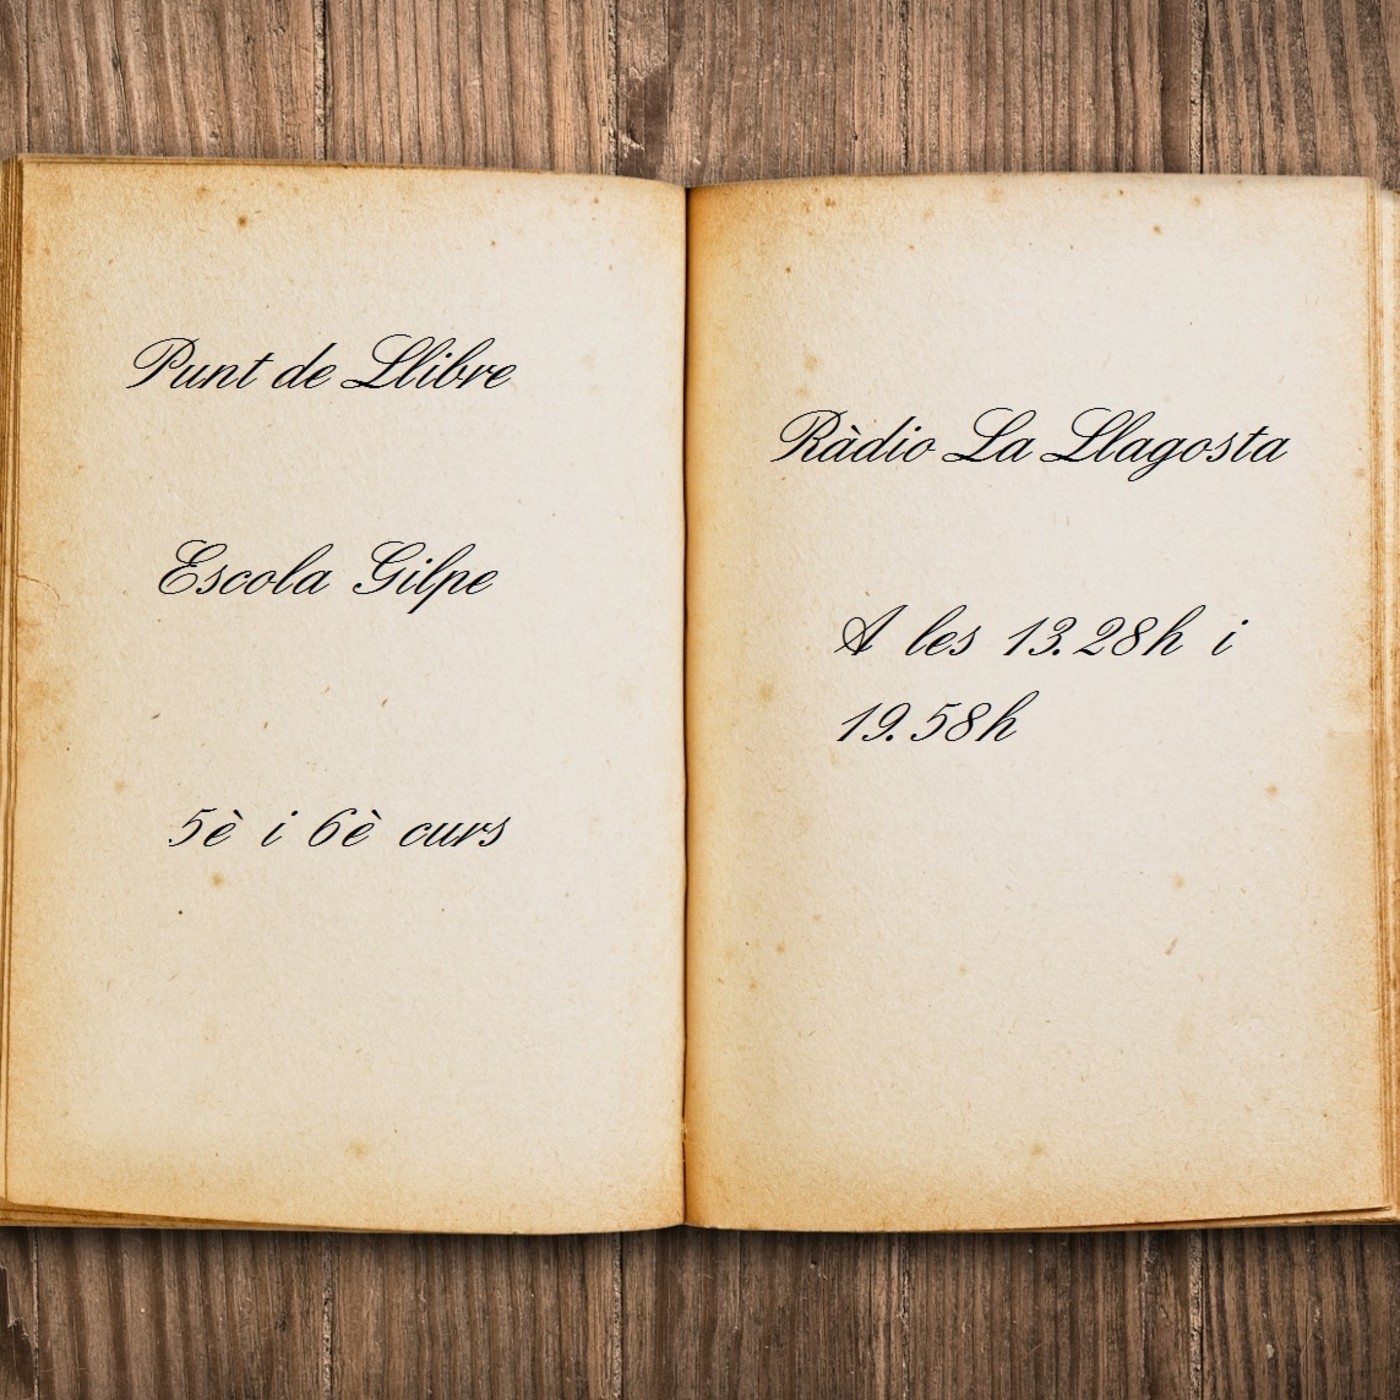 Punt de Llibre
Escola Gilpe
5è i 6è curs
Ràdio La Llagosta
A les 13.28h i
19.58h